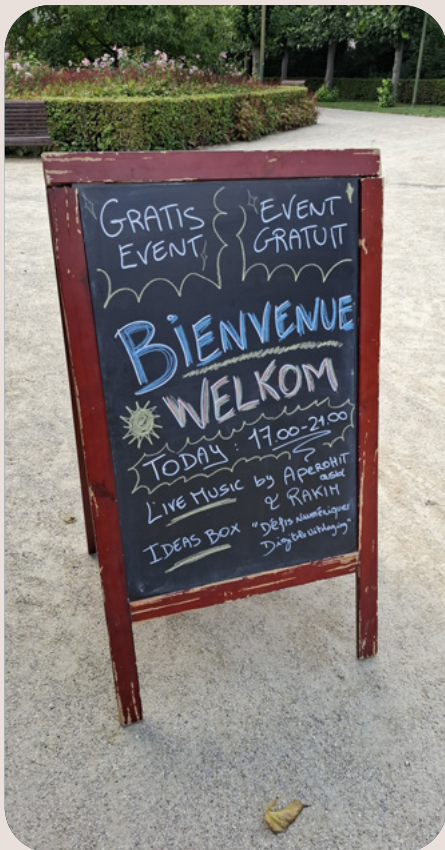 GRATIS EVENT
EVENT GRATUIT
BIENVENUE
WELKOM
TODAY : 17.00-21.00
LIVE MUSIC by APEROHIT
& RAKIM
IDEAS BOX "Défis Numériques
Digitale Uitdaging"